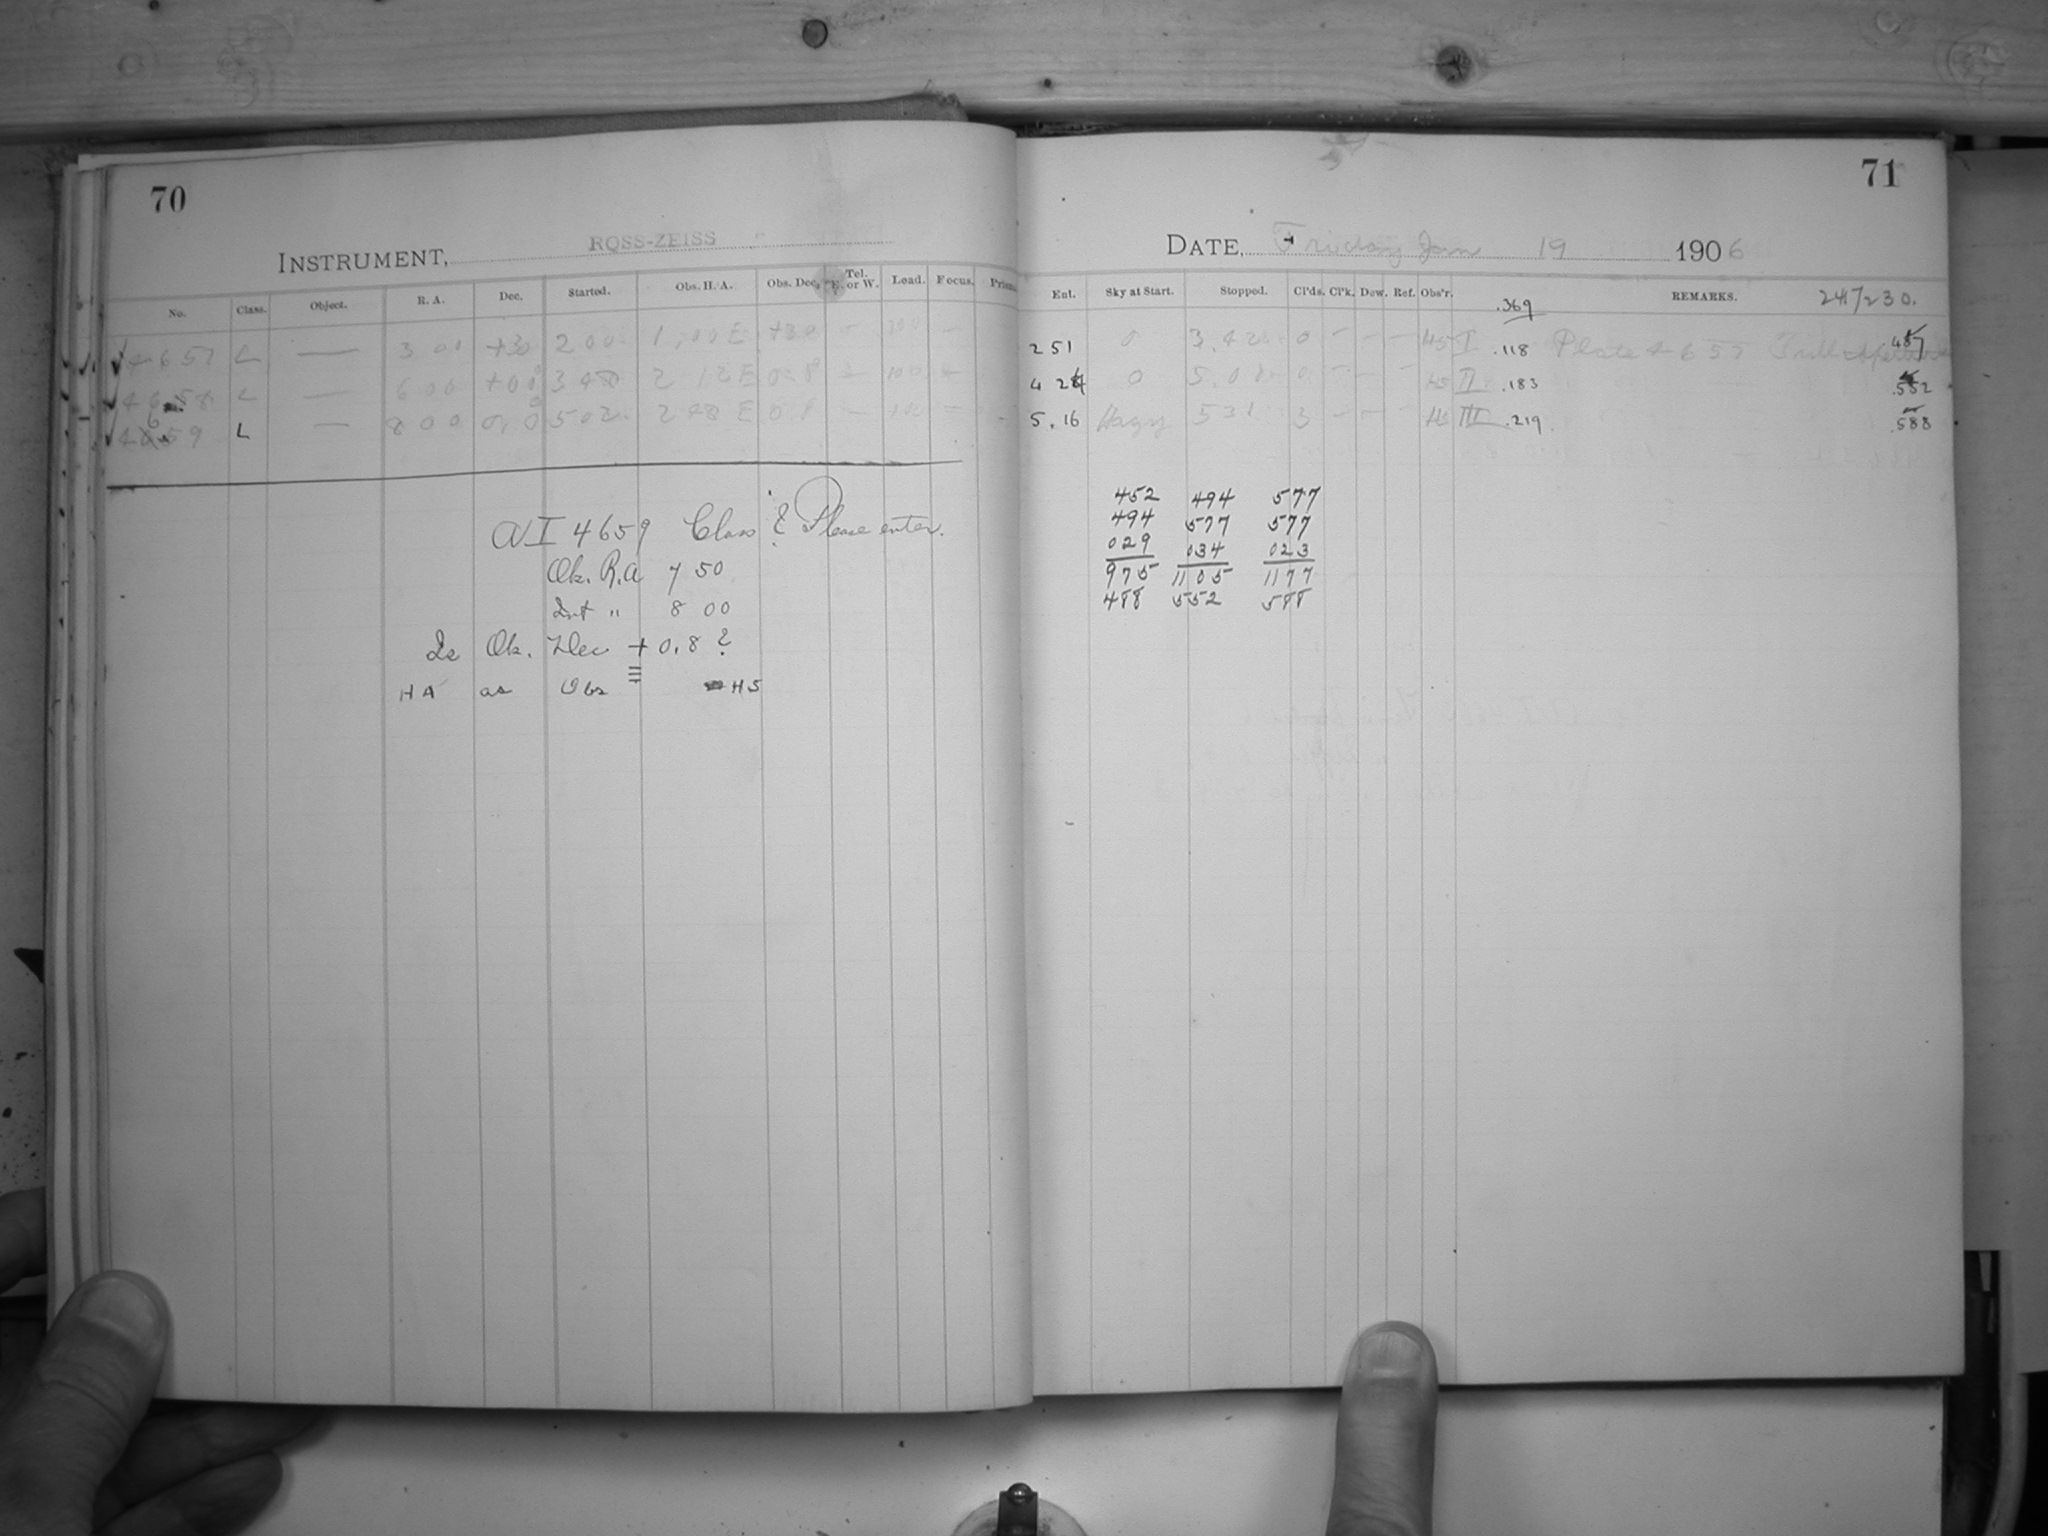 70
INSTRUMENT, ROSS-ZEISS
No. Class. Object. R. A. Dec. Started. Obs. H. A. Obs. Dec. Tel. E. or W. Load. Focus. Prism
4657 L — 3 00 +30 2 00 1,00 E +30
4658 L — 6 00 +00 3 48 2 12 E 0.8
4659 L — 8 00 0.0 5 02 2 48 E 0.8
AI 4659 Class ? Please enter.
Ok. R.A 7 50
Int " 8 00
Is Ok. Dec + 0.8 ?
HA as Obs HS
71
DATE, Friday Jan 19 1906
Ent. Sky at Start. Stopped. Cl'ds. Cl'k. Dew. Ref. Obs'r. REMARKS. 2417230.
.369
2 51 0 3.42 0 – – – HS I .118 Plate 4657 Full Aperture .487
4 24 0 5.01 0 – – – HS II .183 .552
5.16 Hazy 5 31 3 – – – HS III .219 .588
452 494 577
494 577 577
029 034 023
975 1105 1177
488 552 588